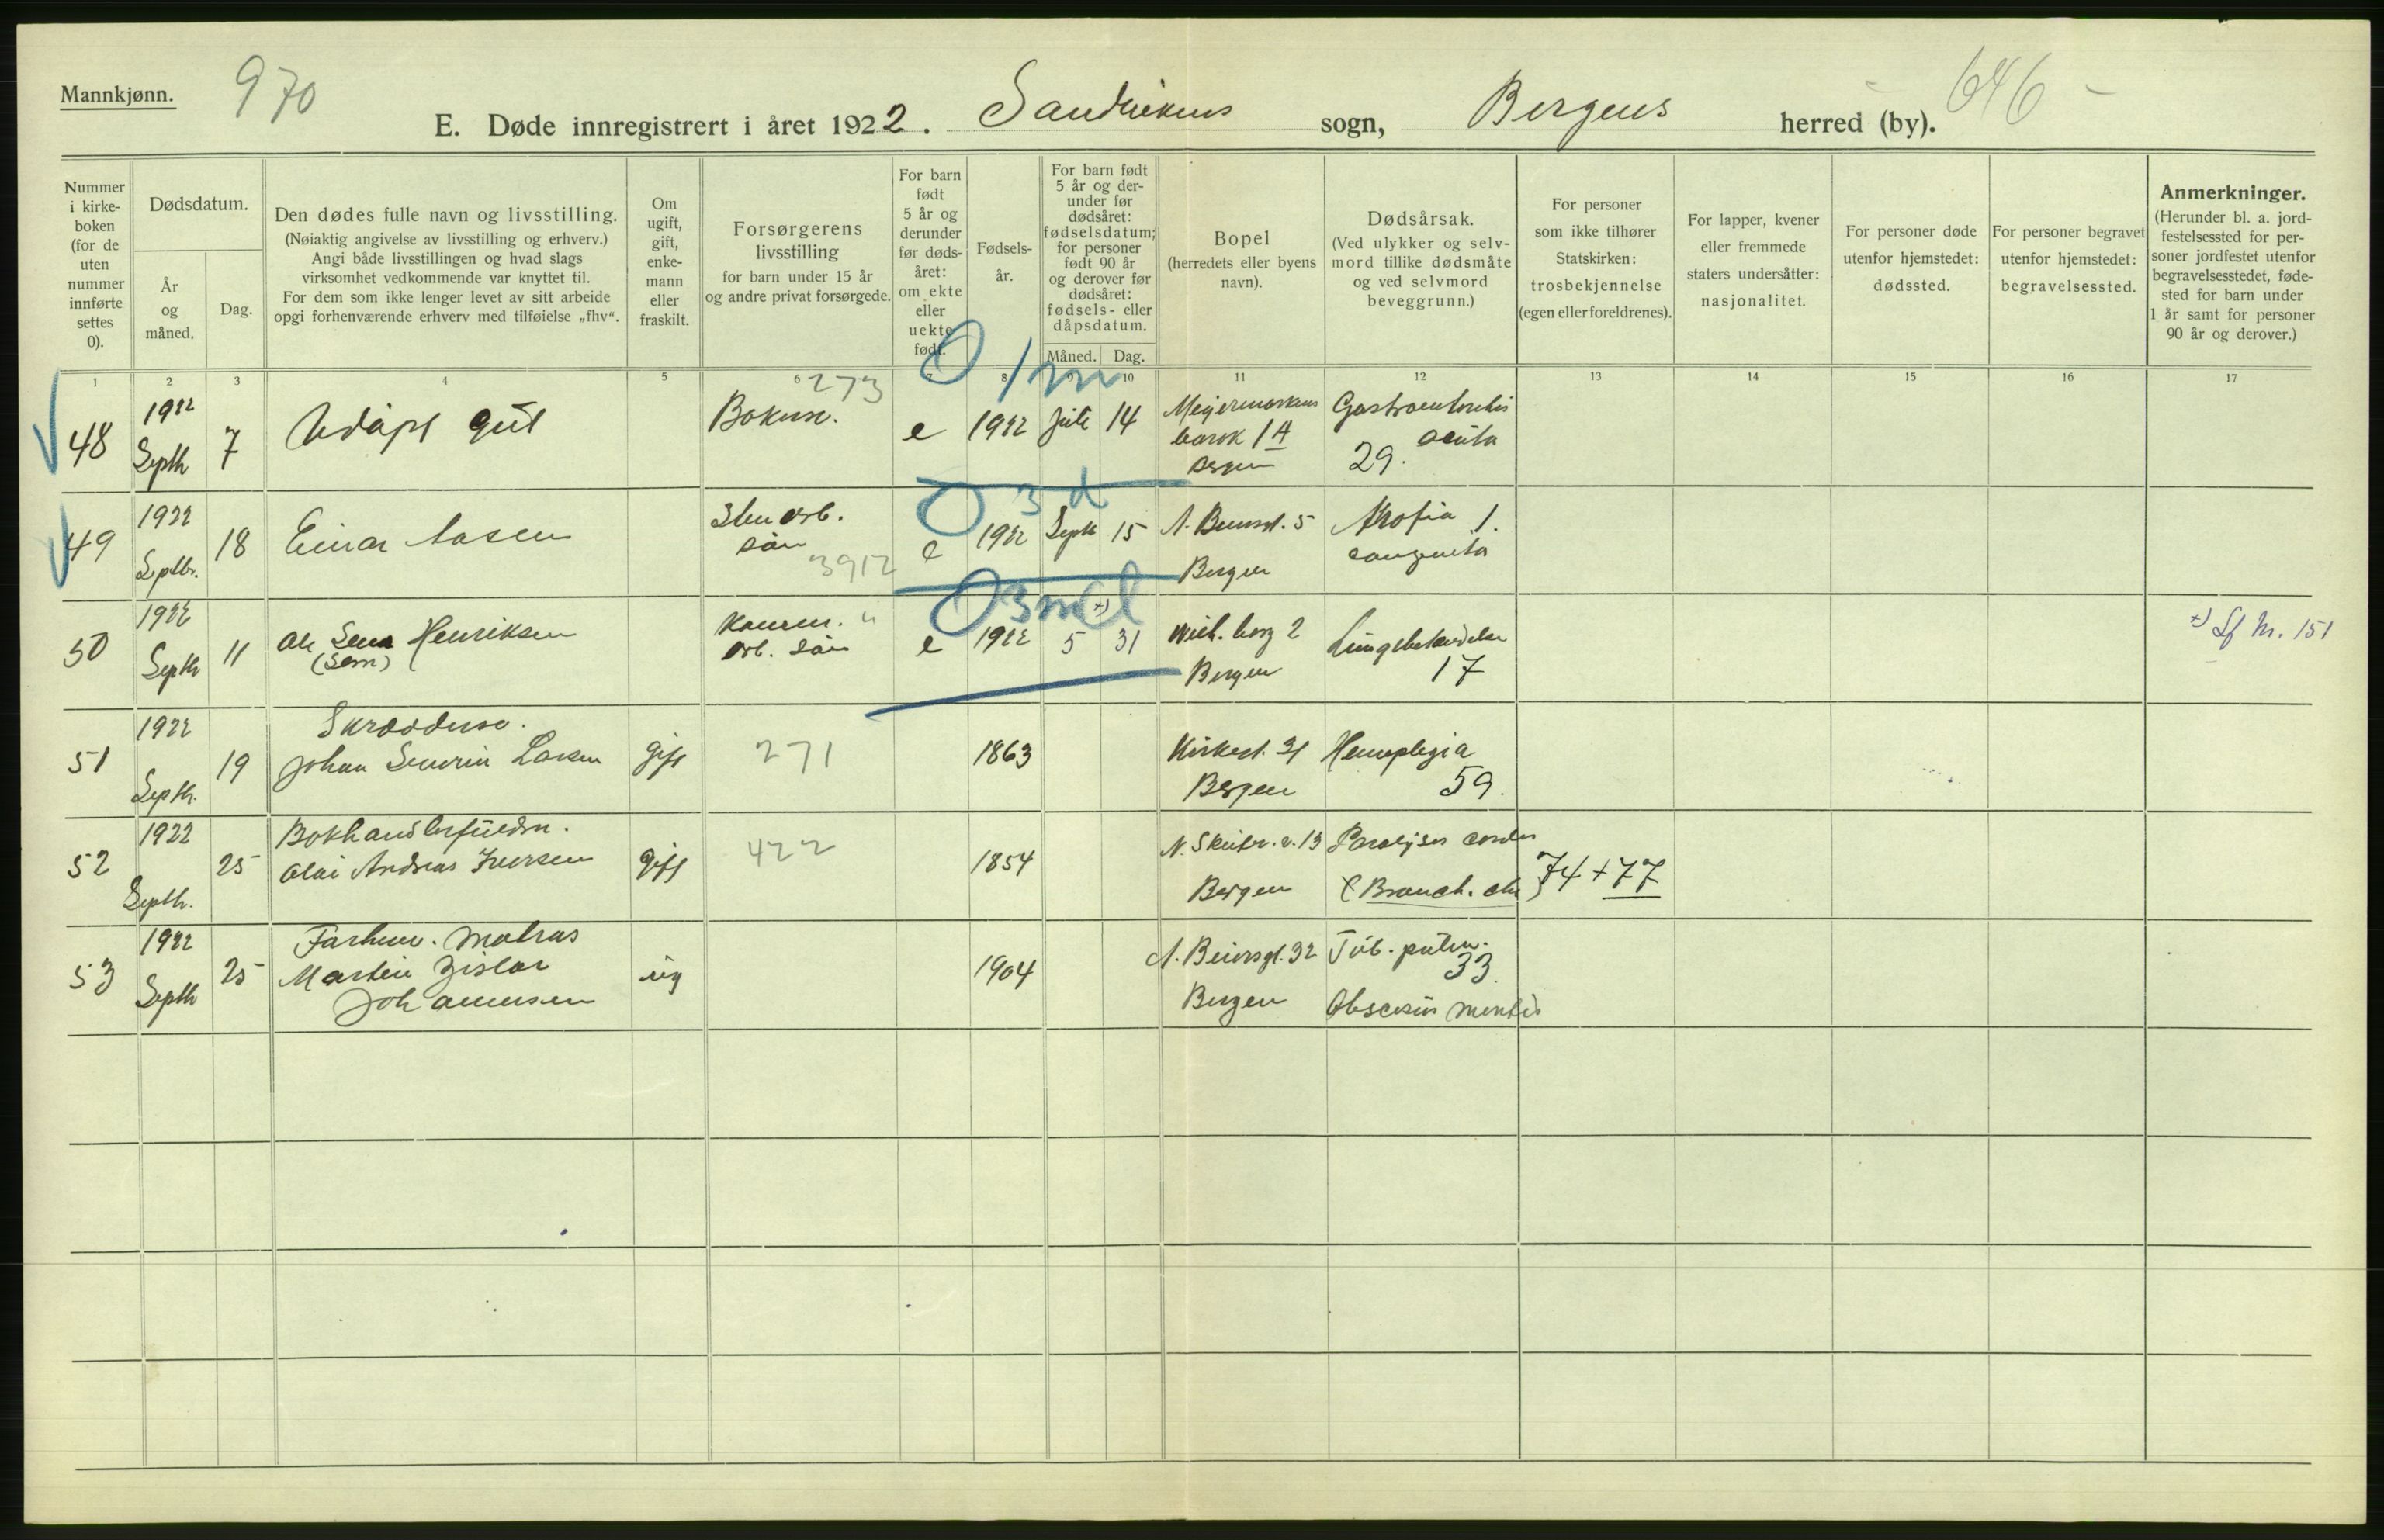 Mannkjønn.
970
646 -
E. Døde innregistrert i året 1922. Sandvikens sogn, Bergens herred (by).
Nummer i kirkeboken (for de uten nummer innførte settes 0).
Dødsdatum.
År og måned.
Dag.
Den dødes fulle navn og livsstilling.
(Nøiaktig angivelse av livsstilling og erhverv.)
Angi både livsstillingen og hvad slags
virksomhet vedkommende var knyttet til.
For dem som ikke lenger levet av sitt arbeide
opgi forhenværende erhverv med tilføielse „fhv“.
Om ugift, gift, enkemann eller fraskilt.
Forsørgerens livsstilling
for barn under 15 år
og andre privat forsørgede.
For barn født 5 år og derunder før dødsåret: om ekte eller uekte født.
Fødselsår.
For barn født 5 år og derunder før dødsåret: fødselsdatum; for personer født 90 år og derover før dødsåret: fødsels- eller dåpsdatum.
Måned. Dag.
Bopel
(herredets eller byens navn).
Dødsårsak.
(Ved ulykker og selvmord tillike dødsmåte og ved selvmord beveggrunn.)
For personer som ikke tilhører Statskirken: trosbekjennelse (egen eller foreldrenes).
For lapper, kvener eller fremmede staters undersåtter: nasjonalitet.
For personer døde utenfor hjemstedet: dødssted.
For personer begravet utenfor hjemstedet: begravelsessted.
Anmerkninger.
(Herunder bl. a. jordfestelsessted for personer jordfestet utenfor begravelsesstedet, fødested for barn under 1 år samt for personer 90 år og derover.)
1 2 3 4 5 6 7 8 9 10 11 12 13 14 15 16 17
273 0 1 m
48 1922 Septb 7 Udøpt gut e 1922 Juli 14 barak 1A Bergen Gastroenteritis acuta 29.
0 3 d
49 1922 Septbr. 18 Einar Aasen søn 3912 e 1922 Septb 15 5 Bergen Atrofia 1. congenita
0 3 m
50 1922 Septb 11 Ole Henriksen (Sem) arb. søn " e 1922 5 31 x) 2 Bergen Lungebetændelse 17
x) Lf Nr. 151
51 1922 Septb. 19 Johan Severin Larsen gift 271 1863 Kirkegt. 31 Bergen Hemeplegia 59.
52 1922 Septb. 25 Olai Andreas Iversen gift 422 1854 13 Bergen Paralysis cordis (Bronch. chr) 74 + 77
53 1922 Septb 25 Matros Martin Johannesen ug 1904 32 Bergen Tub. pulm. 33.